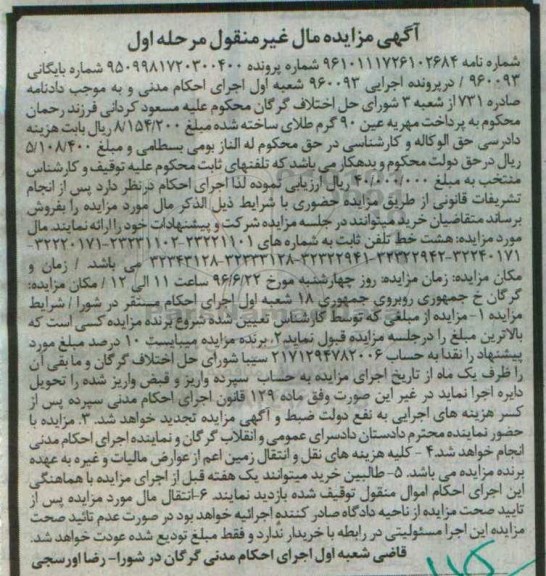 آگهی مزایده مال غیر منقول مرحله اول
شماره نامه ۹۶۱۰۱۱۱۷۲۶۱۰۲۶۸۴ شماره پرونده ۹۵۰۹۹۸۱۷۲۰۳۰۰۴۰۰ شماره بایگانی
۹۶۰۰۹۳ / درپرونده اجرایی ۹۶۰۰۹۳ شعبه اول اجرای احکام مدنی و به موجب دادنامه
صادره ۷۳۱ از شعبه ۳ شورای حل اختلاف گرگان محکوم علیه مسعود کردانی فرزند رحمان
محکوم به پرداخت مهریه عین ۹۰ گرم طلای ساخته شده مبلغ ۸/۱۵۴/۲۰۰ ریال بابت هزینه
دادرسی حق الوکاله و کارشناسی در حق محکوم له الناز بومی بسطامی و مبلغ ۵/۱۰۸/۴۰۰
ریال در حق دولت محکوم و بدهکار می باشد که تلفنهای ثابت محکوم علیه توقیف و کارشناس
منتخب به مبلغ ۴۰/۸۰۰/۰۰۰ ریال ارزیابی نموده لذا اجرای احکام درنظر دارد پس از انجام
تشریفات قانونی از طریق مزایده حضوری با شرایط ذیل الذکر مال مورد مزایده را بفروش
برساند متقاضیان خرید میتوانند در جلسه مزایده شرکت و پیشنهادات خود را ارائه نمایند. مال
مورد مزایده: هشت خط تلفن ثابت به شماره های ۳۲۲۲۱۱۰۱-۳۲۲۳۱۱۰۲-۳۲۲۲۰۱۷۱-
۳۲۲۴۰۱۷۱-۳۲۳۲۲۹۴۲-۳۲۳۲۲۹۴۱-۳۲۳۳۳۱۲۸-۳۲۳۴۳۱۲۸ می باشد. / زمان و
مکان مزایده: زمان مزایده: روز چهارشنبه مورخ ۹۶/۶/۲۲ ساعت ۱۱ الی ۱۲ / مکان مزایده:
گرگان خ جمهوری روبروی جمهوری ۱۸ شعبه اول اجرای احکام مستقر در شورا / شرایط
مزایده ۱-مزایده از مبلغی که توسط کارشناس تعیین شده شروع برنده مزایده کسی است که
بالاترین مبلغ را درجلسه مزایده قبول نماید ۲. برنده مزایده میبایست ۱۰ درصد مبلغ مورد
پیشنهاد را نقدا به حساب ۲۱۷۱۲۹۴۷۸۲۰۰۶ سیبا شورای حل اختلاف گرگان و مابقی آن
را ظرف یک ماه از تاریخ اجرای مزایده به حساب سپرده واریز و قبض واریز شده را تحویل
دایره اجرا نماید در غیر این صورت وفق ماده ۱۲۹ قانون اجرای احکام مدنی سپرده پس از
کسر هزینه های اجرایی به نفع دولت ضبط و آگهی مزایده تجدید خواهد شد. ۳. مزایده با
حضور نماینده محترم دادستان دادسرای عمومی و انقلاب گرگان و نماینده اجرای احکام مدنی
انجام خواهد شد.۴ - کلیه هزینه های نقل و انتقال زمین اعم از عوارض مالیات و غیره به عهده
برنده مزایده می باشد. ۵-طالبین خرید میتوانند یک هفته قبل از اجرای مزایده با هماهنگی
این اجرای احکام اموال منقول توقیف شده بازدید نمایند. ۶-انتقال مال مورد مزایده پس از
تایید صحت مزایده از ناحیه دادگاه صادر کننده اجرائیه خواهد بود در صورت عدم تائید صحت
مزایده این اجرا مسئولیتی در رابطه با خریدار ندارد و فقط مبلغ تودیع شده عودت خواهد شد.
قاضی شعبه اول اجرای احکام مدنی گرگان در شورا- رضا اورسجی